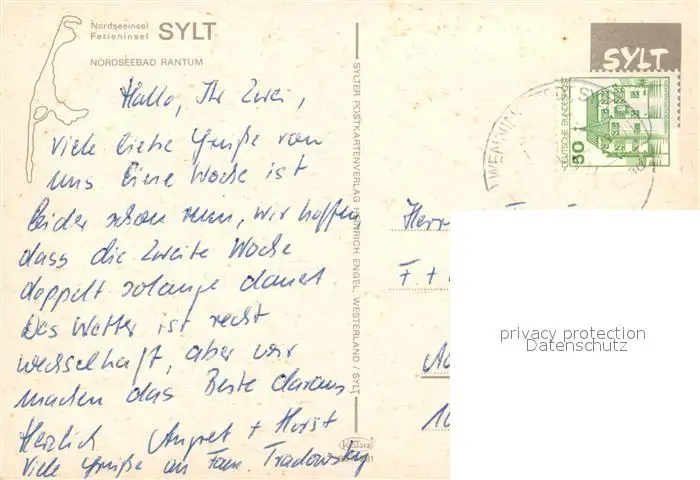 Nordseeinsel
Ferieninsel SYLT
NORDSEEBAD RANTUM
Hallo, Ihr Zwei,
viele liebe Grüße von
uns. Eine Woche ist
leider schon rum, wir hoffen
dass die zweite Woche
doppelt solange dauert.
Das Wetter ist recht
wechselhaft, aber wir
machen das Beste daraus.
Herzlich Angret + Horst
Viele Grüße an Fam. Tradowsky
SYLTER POSTKARTENVERLAG HEINRICH ENGEL, WESTERLAND / SYLT
SYLT
DEUTSCHE BUNDESPOST
50
Herrn
F. +
10
privacy protection
Datenschutz